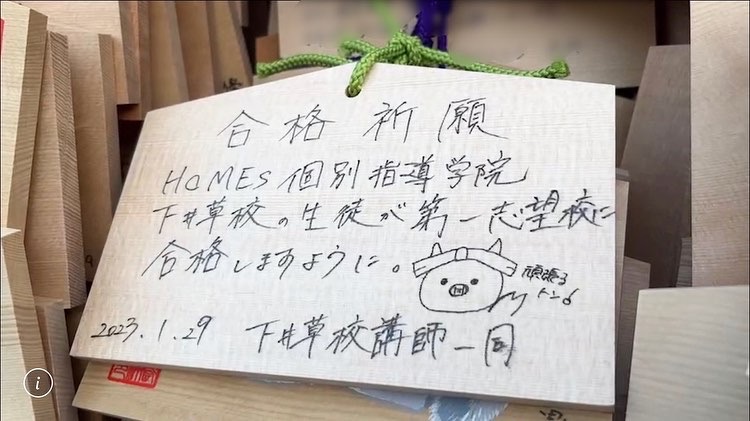 合格祈願
HOMES個別指導学院
下井草校の生徒が第一志望校に
合格しますように。
頑張る
トン♂
2023.1.29 下井草校講師一同